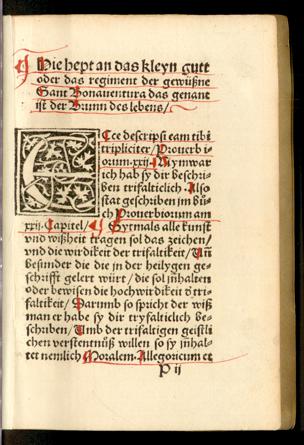 Hie hept an das kleyn gutt
oder das regiment der gewüßne
Sant Bonauentura das genant
ist der Brunn des lebens/
ECce descripsi eam tibi
tripliciter/ Prouerbi-
orum.xxij. Nym war
ich hab sy dir beschri-
ben trifalticlich. Also
stat geschriben im bü-
ch Prouerbiorum am
xxij. Capitel/ Sytmals alle kunst
vnd wißheit tragen sol das zeichen/
vnd die wirdikeit der trifaltikeit/ Vn̄
besunder die die jn der heilygen ge-
schrifft gelert würt/ die sol jnhalten
oder bewisen die hochwirdikeit d' tri-
faltikeit/ Darumb so spricht der wiß
man er habe sy dir tryfalticlich be-
schriben/ Umb der trifaltigen geistli
chen verstentnüß willen so sy jnhal-
tet nemlich Moralem. Allegoricum et
P ij